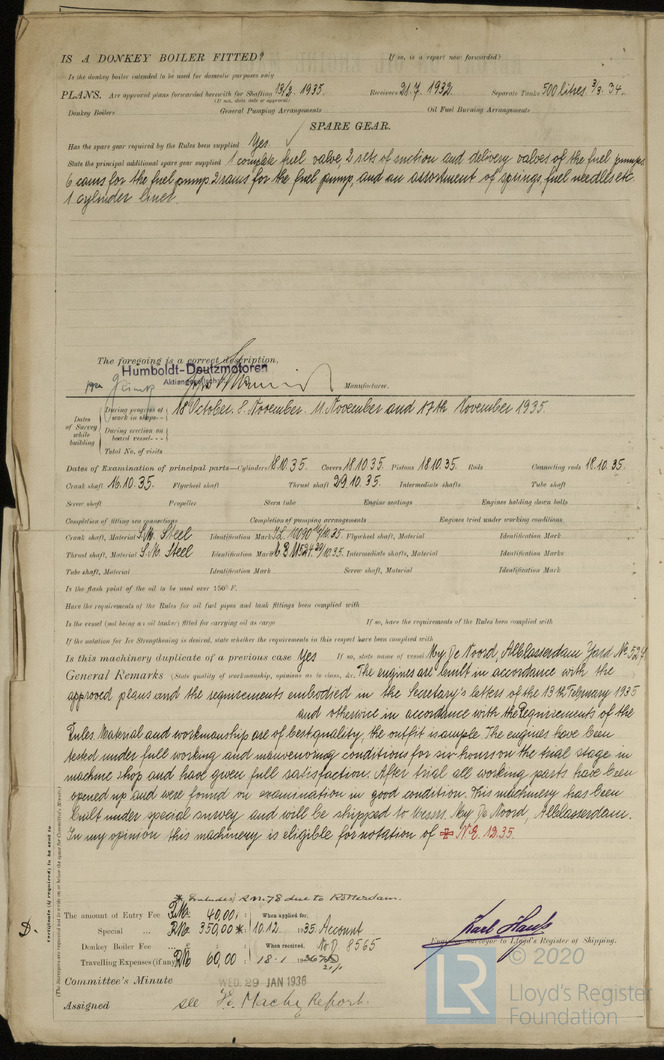 IS A DONKEY BOILER FITTED? If so, is a report now forwarded?
Is the donkey boiler intended to be used for domestic purposes only
PLANS. Are approved plans forwarded herewith for Shafting 13/2. 1935. Receivers 21.7. 1932. Separate Tanks 500 litres 3/3. 34.
(If not, state date of approval)
Donkey Boilers General Pumping Arrangements Oil Fuel Burning Arrangements
SPARE GEAR.
Has the spare gear required by the Rules been supplied Yes
State the principal additional spare gear supplied 1 complete fuel valve 2 sets of suction and delivery valves of the fuel pumps
6 cams for the fuel pump 2 rams for the fuel pump, and an assortment of springs, fuel needles etc.
1 cylinder liner.
The foregoing is a correct description,
Humboldt-Deutzmotoren
Aktiengesellschaft
Manufacturer.
Dates of Survey while building
During progress of work in shops - - 18 October. 8. November. 11. November and 17th November 1935.
During erection on board vessel - - -
Total No. of visits
Dates of Examination of principal parts—Cylinders 18.10.35. Covers 18.10.35. Pistons 18.10.35. Rods Connecting rods 18.10.35.
Crank shaft 16.10.35. Flywheel shaft Thrust shaft 29.10.35. Intermediate shafts Tube shaft
Screw shaft Propeller Stern tube Engine seatings Engines holding down bolts
Completion of fitting sea connections Completion of pumping arrangements Engines tried under working conditions
Crank shaft, Material S.M. Steel Identification Mark 10090 16/10.35. Flywheel shaft, Material Identification Mark
Thrust shaft, Material S.M. Steel Identification Mark 29/10.35. Intermediate shafts, Material Identification Marks
Tube shaft, Material Identification Mark Screw shaft, Material Identification Mark
Is the flash point of the oil to be used over 150° F.
Have the requirements of the Rules for oil fuel pipes and tank fittings been complied with
Is the vessel (not being an oil tanker) fitted for carrying oil as cargo If so, have the requirements of the Rules been complied with
If the notation for Ice Strengthening is desired, state whether the requirements in this respect have been complied with
Is this machinery duplicate of a previous case Yes If so, state name of vessel My De Noord, Alblasserdam Yard No. 527
General Remarks (State quality of workmanship, opinions as to class, &c. The engines are built in accordance with the
approved plans and the requirements embodied in the Secretary's letters of the 13th. February 1935
and otherwise in accordance with the Requirements of the
Rules. Material and workmanship are of best quality, the outfit is ample. The engines have been
tested under full working and manoeuvring conditions for six hours on the trial stage in
machine shop and have given full satisfaction. After trial all working parts have been
opened up and were found on examination in good condition. This machinery has been
built under special survey and will be shipped to Messrs. My De Noord, Alblasserdam.
In my opinion this machinery is eligible for notation of N.E. 12.35.
* Includes R.M. 78 due to Rotterdam.
The amount of Entry Fee .. RM. 40,00 : When applied for,
Special ... ... RM. 350,00 *: 10.12. 1935. Account
Donkey Boiler Fee ... : : When received, No D. 8565
Travelling Expenses (if any) RM 60,00 : 18.1 1936
21/1
Karl Hauß
Engineer Surveyor to Lloyd's Register of Shipping.
Committee's Minute WED. 29 JAN 1936
Assigned see Machy Report.
D.
Certificate (if required) to be sent to
(The Surveyors are requested not to write on or below the space for Committee's Minute.)
© 2020
LR
Lloyd's Register
Foundation